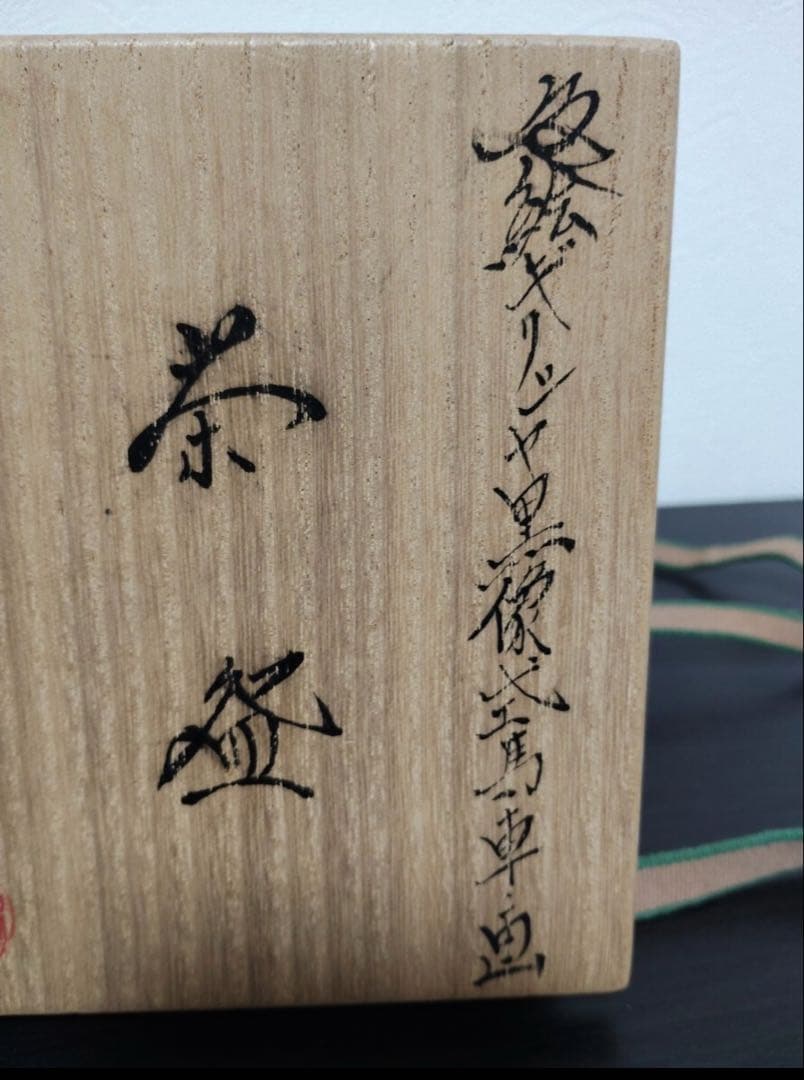 色絵ギリシヤ黒像式馬車画
茶盌